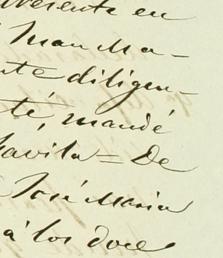 presente en
Juan Ma-
nte diligen-
té, mandé
Davila = De
José Maria
á los doce